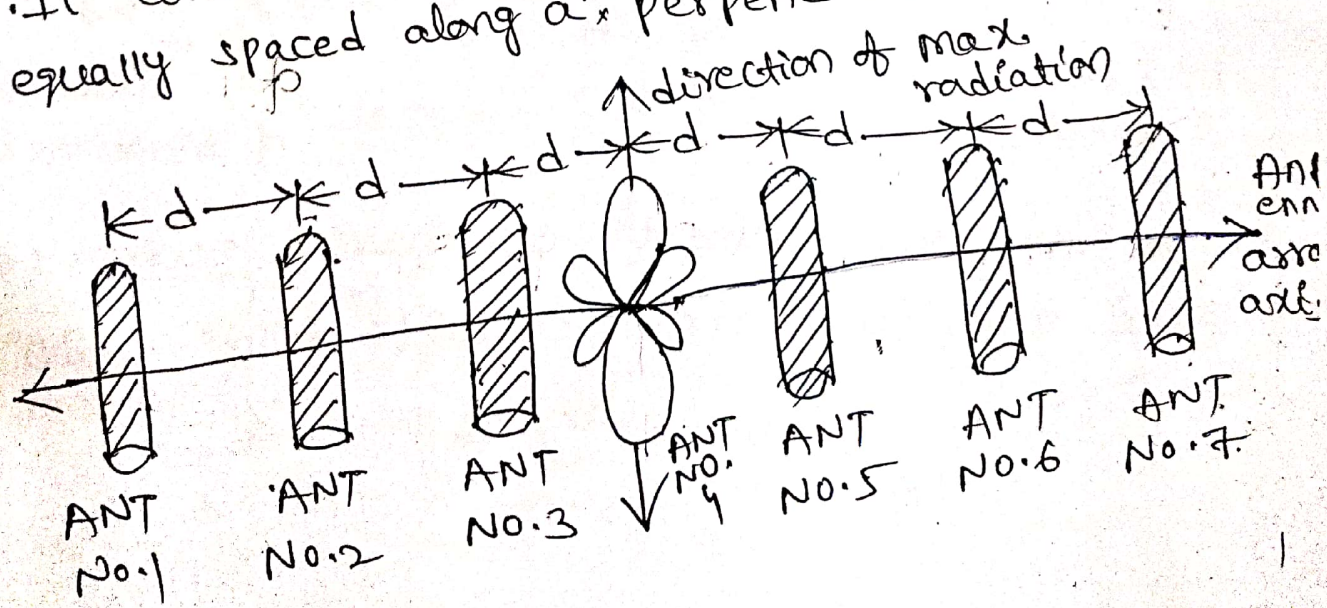 equally spaced along a
direction of max.
radiation
d d d d d d
ANT
NO.1
ANT
NO.2
ANT
NO.3
ANT
NO.
4
ANT
NO.5
ANT
NO.6
ANT
NO.7.